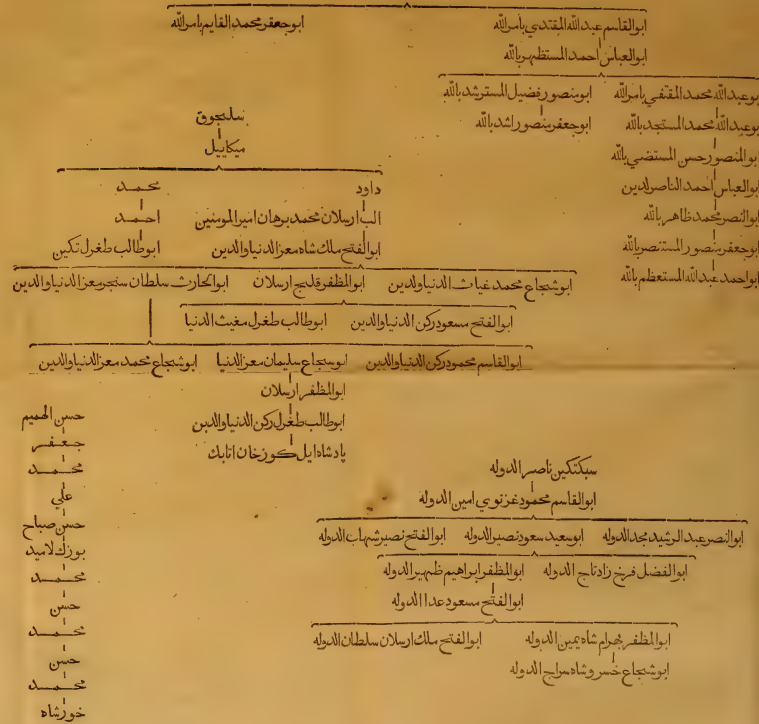 ابوالقاسم عبدالله المقتدي بامرالله
ابوجعفر محمد القايم بامرالله
ابوالعباس احمد المستظهر بالله
بوعبدالله محمد المقتفي بامرالله
ابومنصور فضيل المسترشد بالله
بوعبدالله محمد المستنجد بالله
ابوجعفر منصور راشد بالله
ابوالمنصور حسن المستضي بالله
ابوالعباس احمد الناصرلدين
ابوالنصر محمد ظاهر بالله
ابوجعفر منصور المستنصر بالله
ابواحمد عبدالله المستعظم بالله
سلجوق
ميكاييل
داود
محمد
الب ارسلان محمد برهان امير المومنين
احمد
ابوالفتح ملك شاه معز الدنيا والدين
ابوطالب طغرل تكين
ابوشجاع محمد غياث الدنيا ولدين
ابوالمظفر قليج ارسلان
ابوالحارث سلطان سنجر معز الدنيا والدين
ابوالفتح مسعود ركن الدنيا والدين
ابوطالب طغرل مغيث الدنيا
ابوالقاسم محمود ركن الدنيا والدين
ابوسجاع سليمان معز الدنيا
ابوشجاع محمد معز الدنيا والدين
ابوالمظفر ارسلان
ابوطالب طغرل ركن الدنيا والدين
پادشاه ايل كوزخان اتابك
سبكتكين ناصر الدوله
ابوالقاسم محمود غزنوي امين الدوله
ابوالنصر عبد الرشيد مجد الدوله
ابوسعيد سعود نصير الدوله
ابوالفتح نصير شهاب الدوله
ابوالفضل فرخ زاد تاج الدوله
ابوالمظفر ابراهيم ظهير الدوله
ابوالفتح مسعود عدا الدوله
ابوالمظفر بهرام شاه يمين الدوله
ابوالفتح ملك ارسلان سلطان الدوله
ابوشجاع خسرو شاه سراج الدوله
حسن الهميم
جعفر
محمد
علي
حسن صباح
بوزك لاميد
محمد
حسن
محمد
حسن
محمد
خورشاه